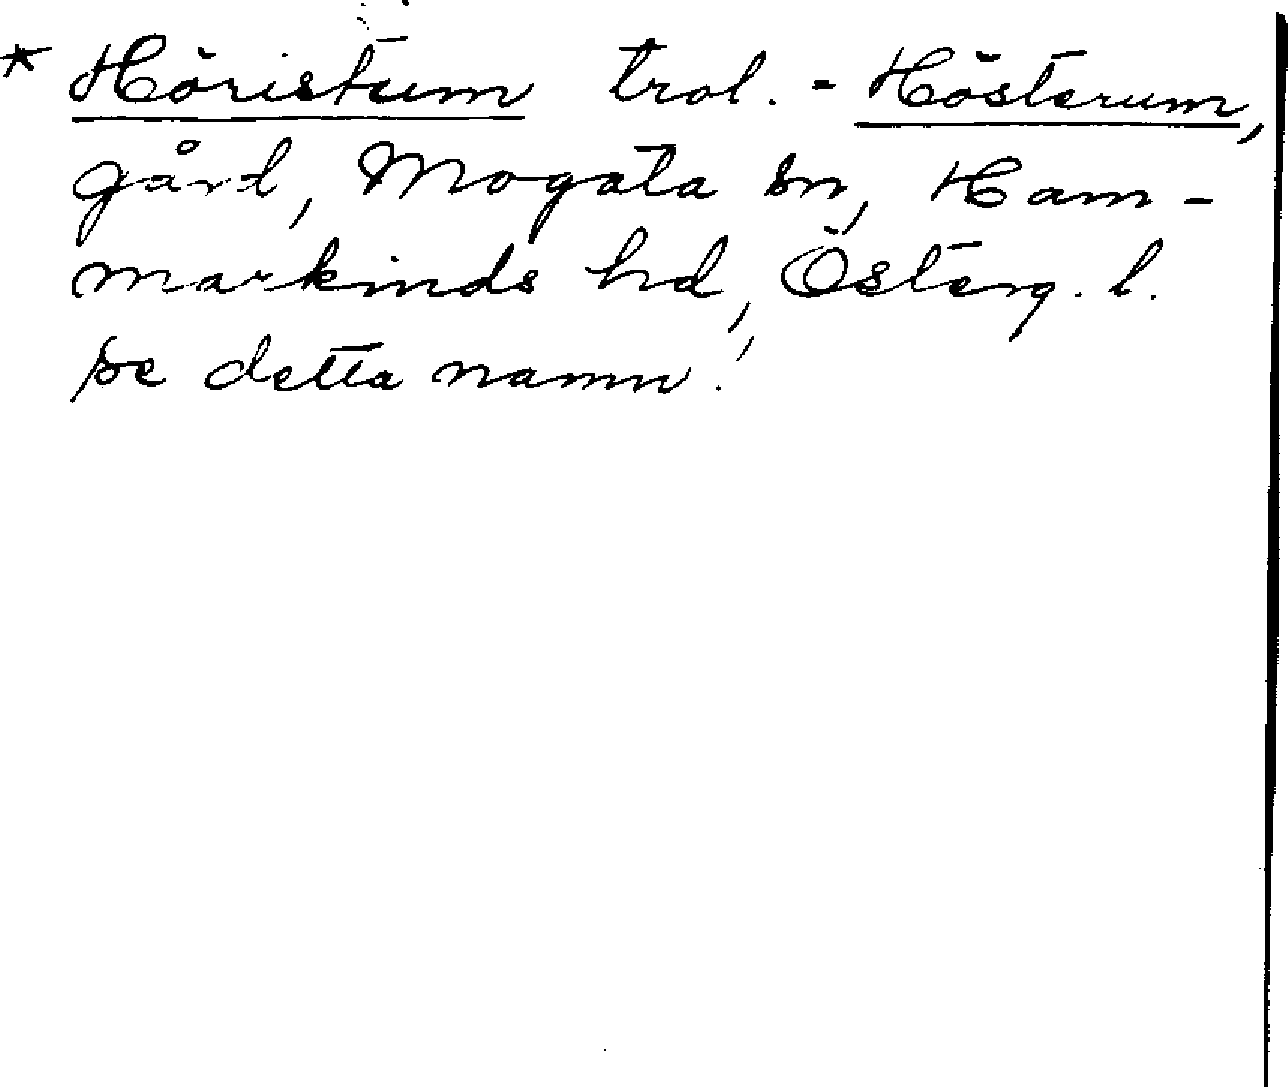 * Höristum trol. - Hösterum,
gård, Mogata sn, Ham-
markinds hd, Österg. l.
se detta namn!